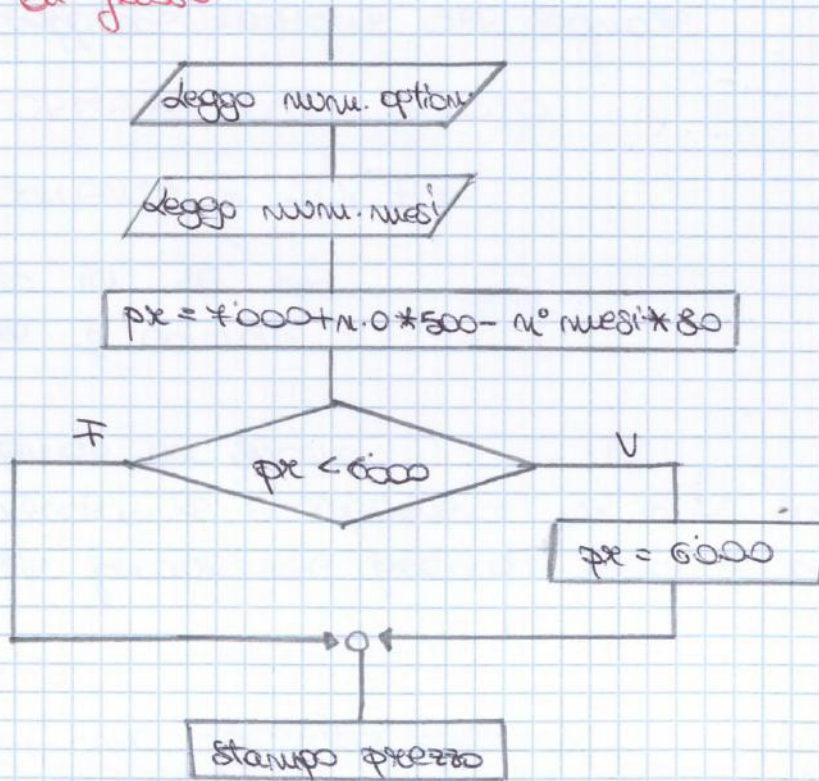 Leggo num. option
Leggo num. mesi
px = 7'000+n.O*500- n° mesi*80
F
px < 6'000
V
px = 6'000
stampo prezzo